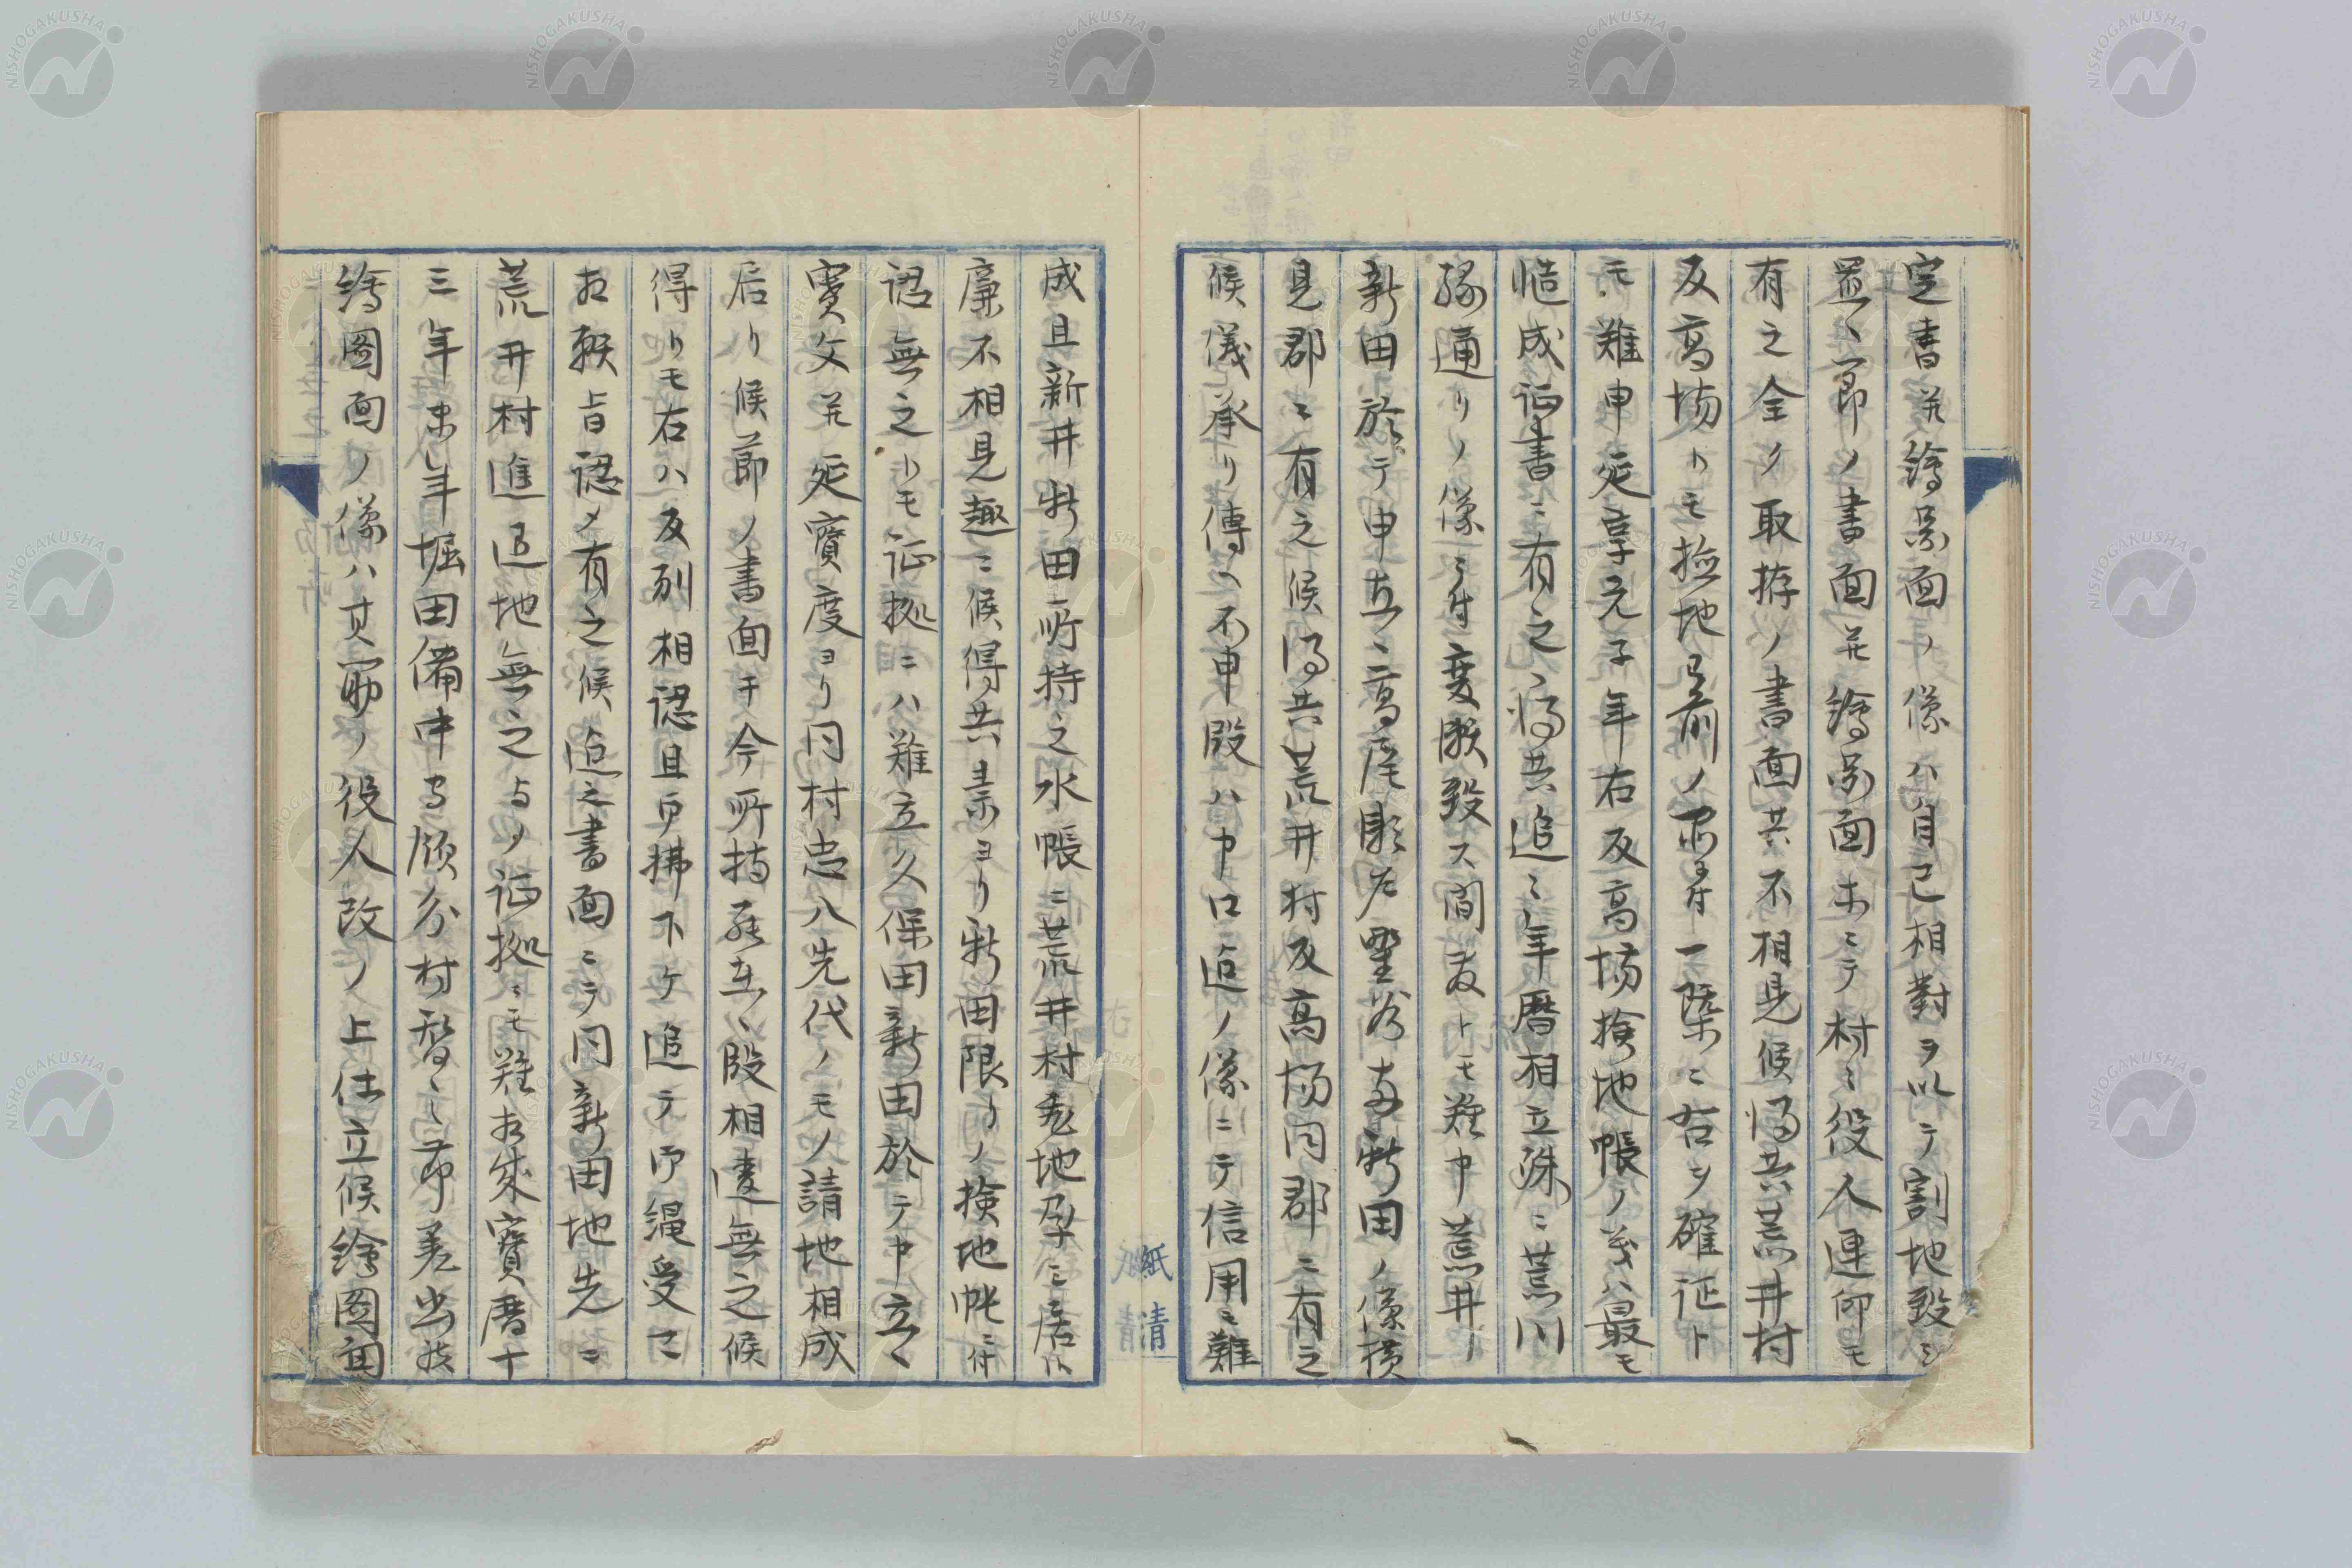 定書并繪図面ノ儀ハ自己相對ヲ以テ割地致シ
置、節ノ書面并繪図面ホニテ村ミ役人連印モ
有之全ク取拵ノ書面共不相見候得共荒井村
反高場トモ撿地已前ノ書付一概ニ右ヲ確証ト
モ難申延享元子年右反高場検地帳ノ義ハ最モ
慥成証書ニ有之、得共追ミ年暦相立殊ニ荒川
縁通リノ儀ミ付変 致ス間敷トモ難申荒井
新田於テ申立、高尾 新田ノ儀横
見郡ニ有之候得共荒井村反高場同郡ニ有之
候儀承リ傳ヘ不申段ハ申口迄ノ儀ニテ信用ミ難
成且新井新田所持之水帳ニ荒井村 地 ミ居候
廉不相見趣ニ候得共素ヨリ新田限リノ検地帳ニ付
認無之トモ証拠ニハ難立久保田新田於テ申立ヘ
寛文并延寶度ヨリ同村忠八先代ノモノ請地相成
居リ候節ノ書面チ今所持罷在、段相違無之候
得トモ右ハ反別相認且御拂下ケ追テ御縄受ニ
相願旨認メ有之候迄之書面ニテ同新田地先ニ
荒井村進退地無之与ノ証拠ミモ難相成寶暦十
三年未年堀田備中守領分村替ミ節差出候
繪図面ノ儀ハ其筋ノ役人改ノ上仕立候繪図面
紙清